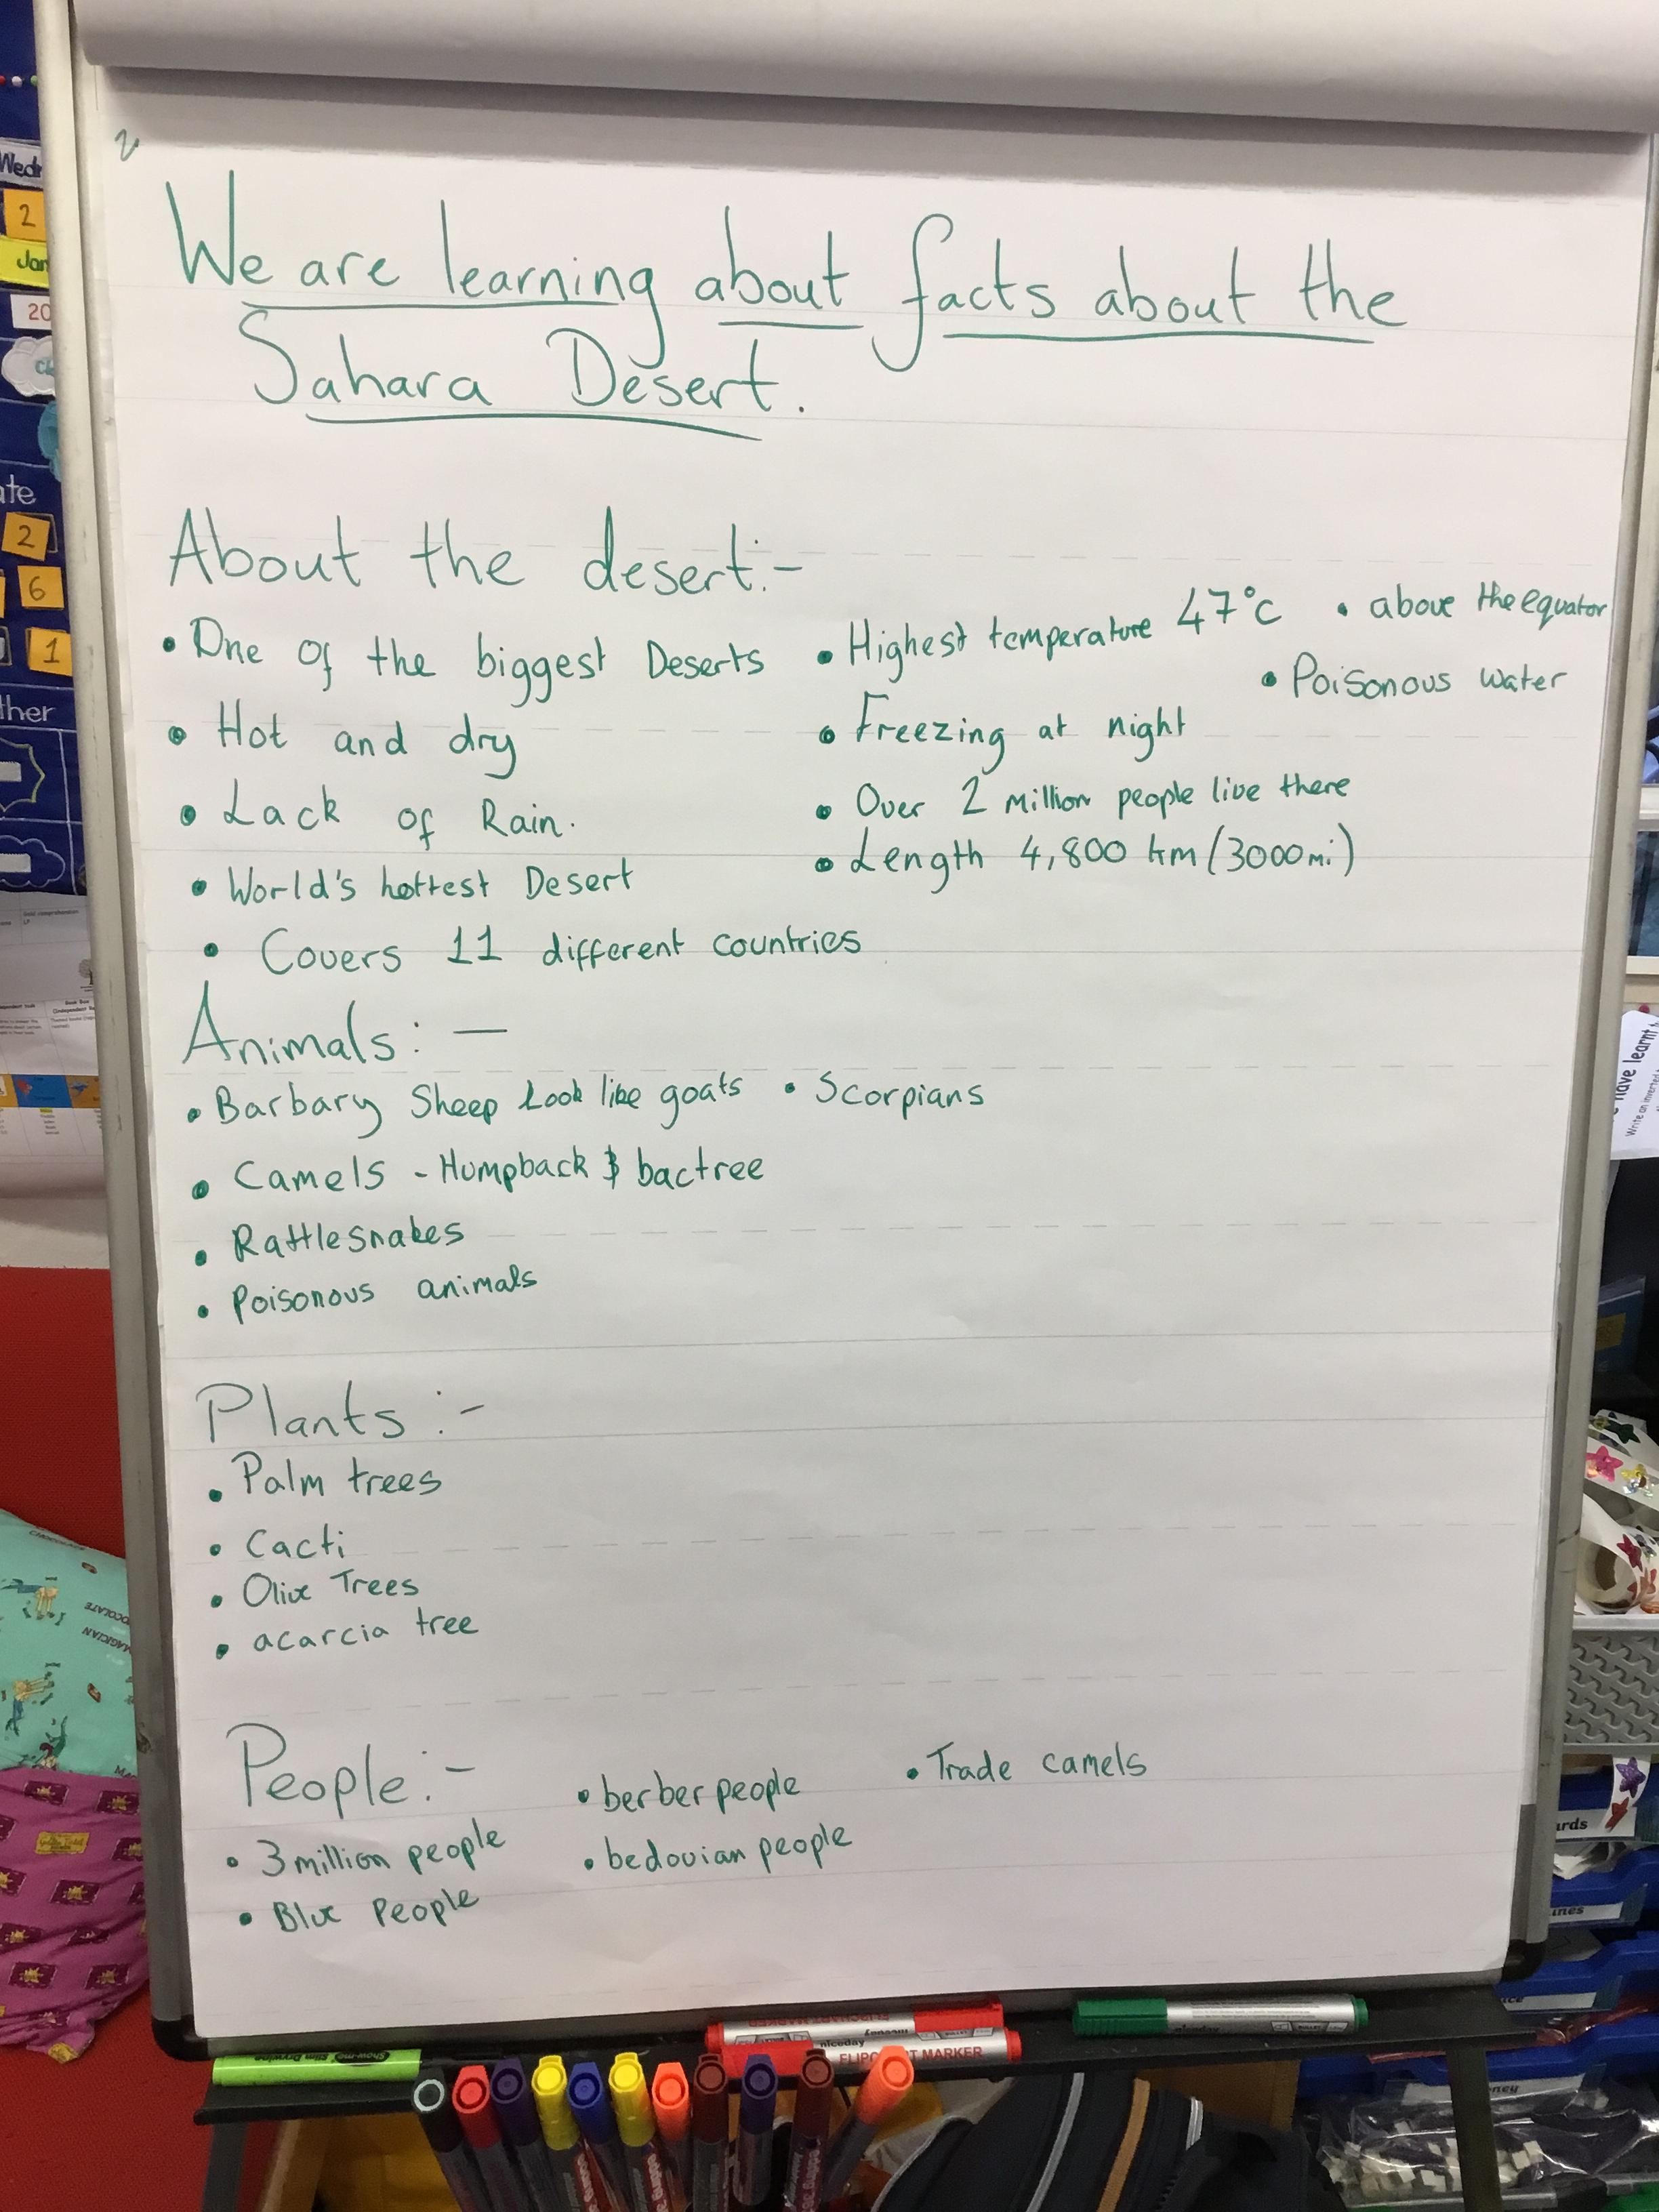 We are learning about facts about the
Sahara Desert.
About the desert:-
• One of the biggest Deserts
• Hot and dry
• Lack of Rain.
• World's hottest Desert
• Covers 11 different countries
• Highest temperature 47°c
• Freezing at night
• Over 2 million people live there
• Length 4,800 km (3000mi)
• above the equator
• Poisonous water
Animals: -
• Barbary Sheep Look like goats • Scorpians
• Camels - Humpback & bactree
• Rattlesnakes
• Poisonous animals
Plants :-
• Palm trees
• Cacti
• Olive Trees
• acarcia tree
People:-
• 3 million people
• Blue People
• berber people
• bedouian people
• Trade camels
Wed
2
Jan
20
ate
2
6
1
ther
have learnt
Write an inverted
CHOCOLATE
MAGICIAN
Show-me Slim Drywipe
niceday
FLIPCHART MARKER
niceday
FLIP T MARKER
niceday
ards
ines
ney